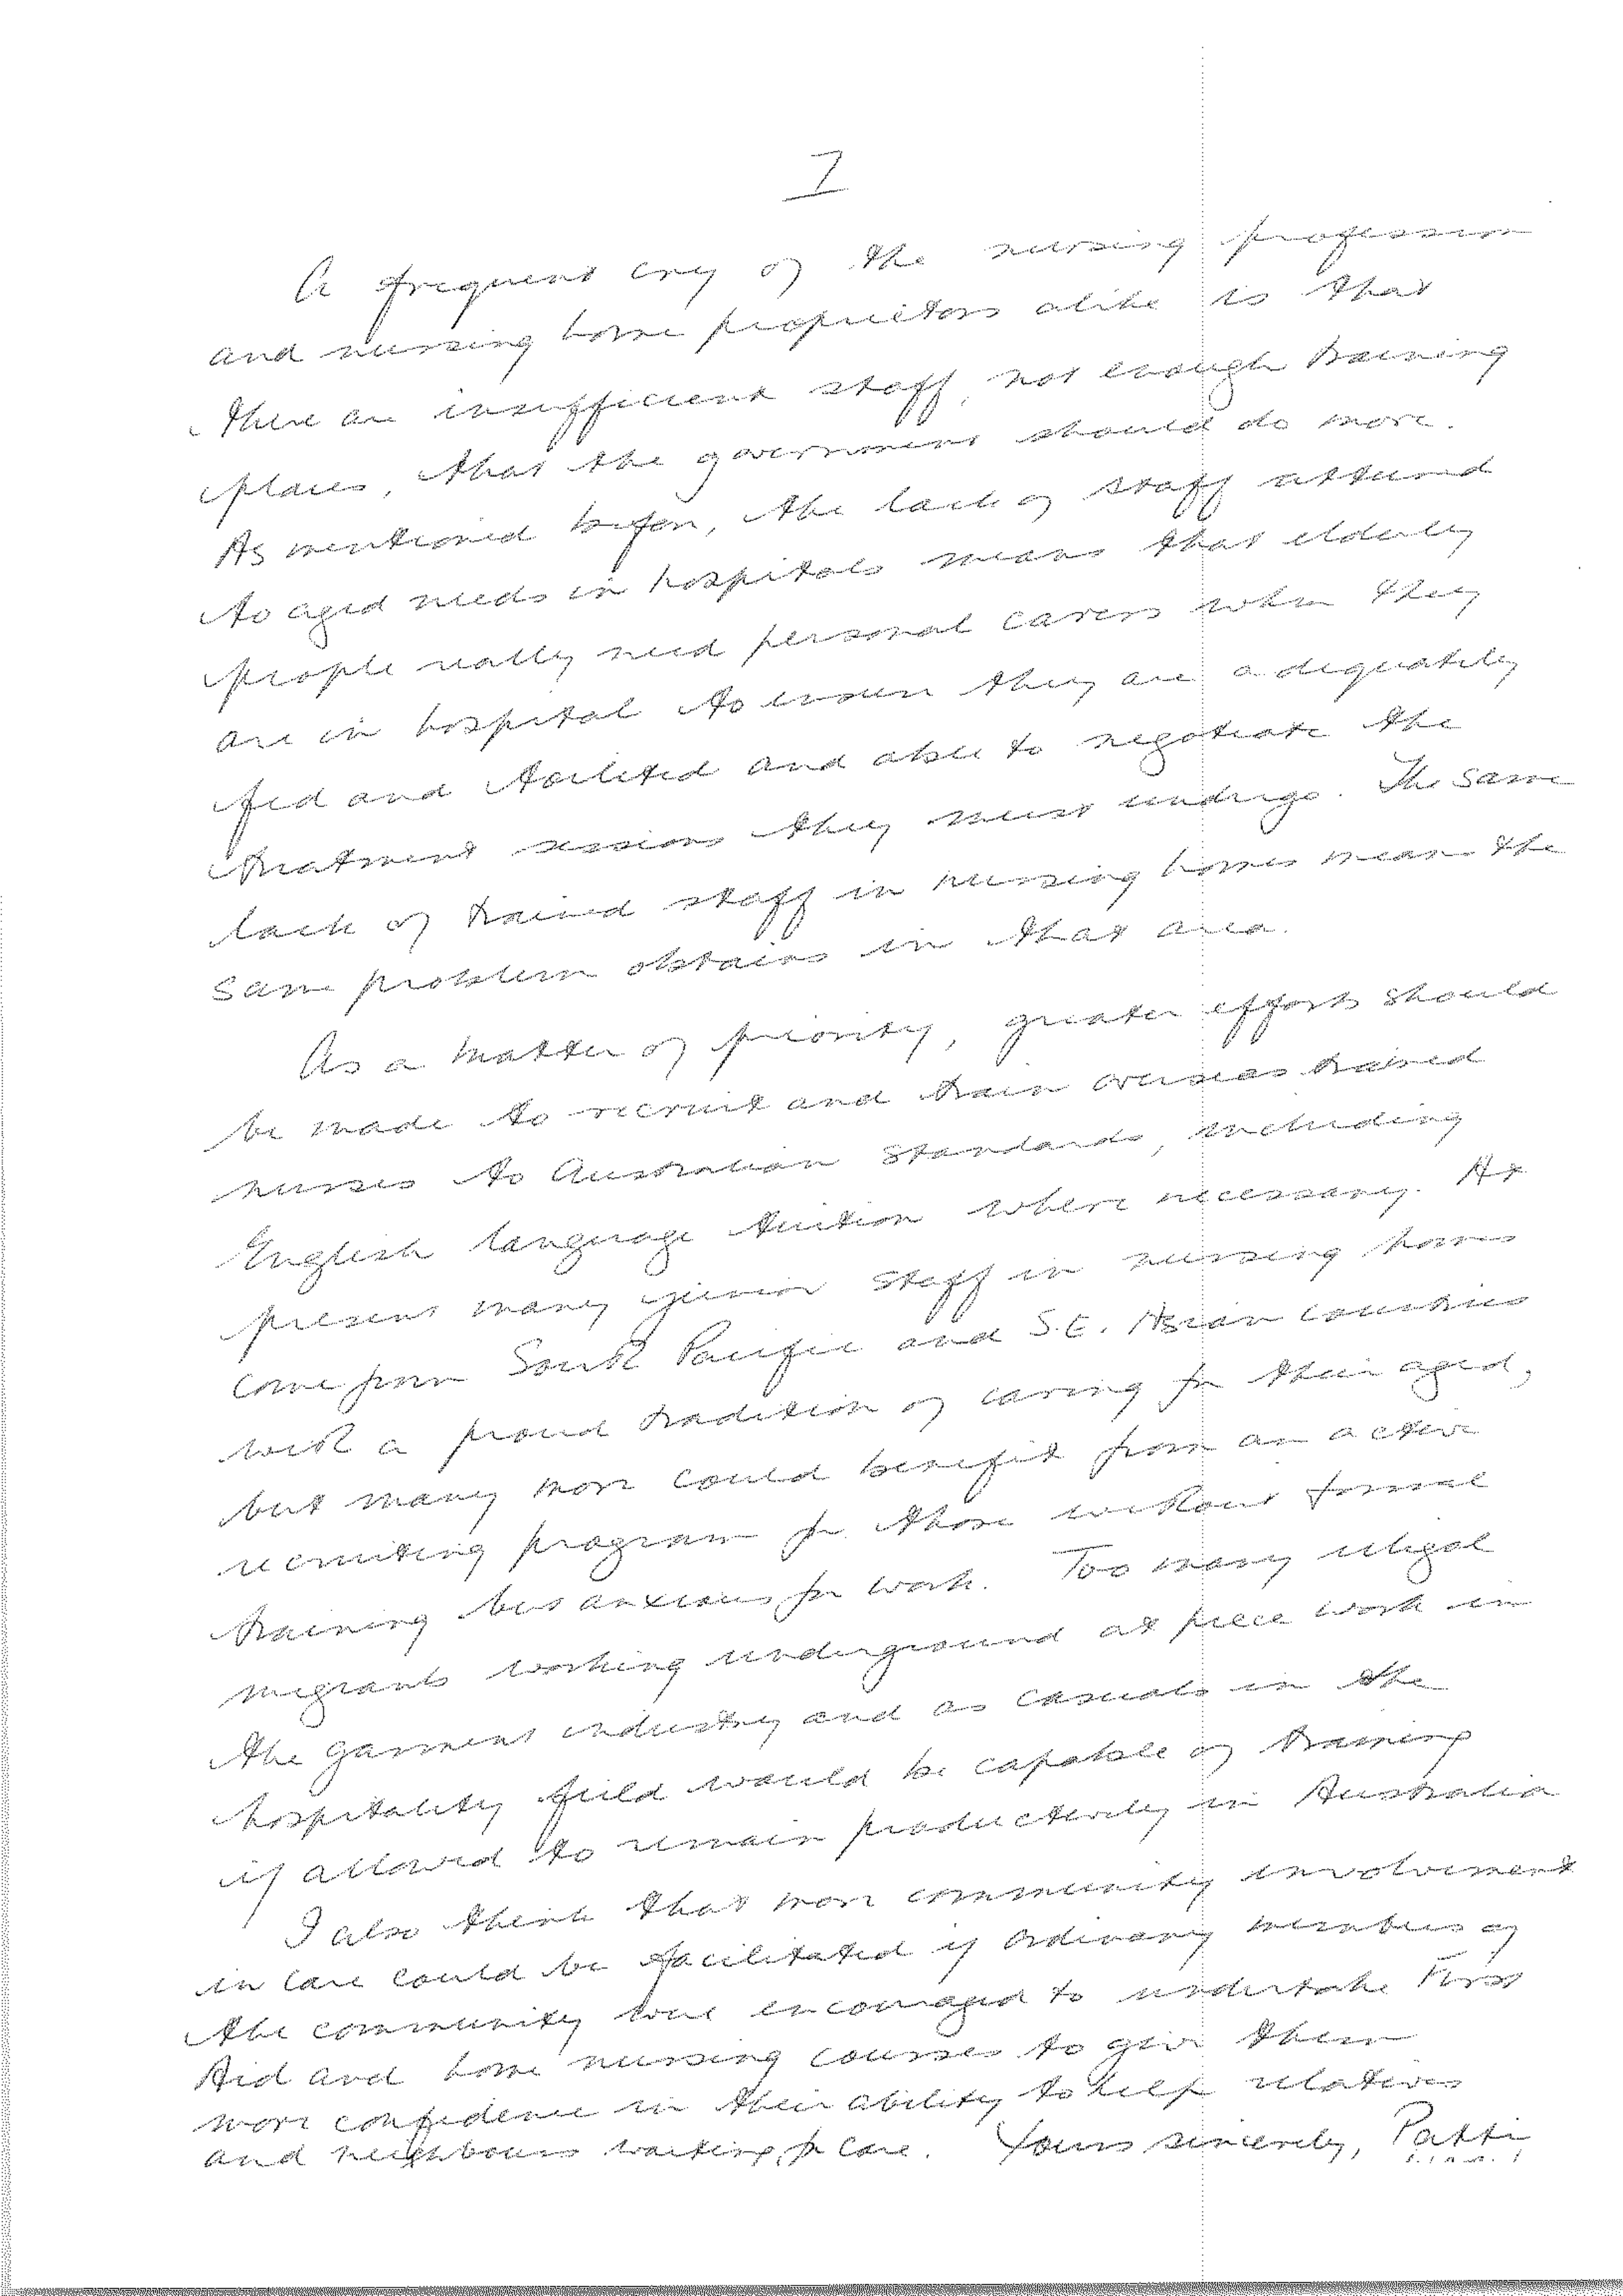 7
A frequent cry of the nursing profession
and nursing home proprietors alike is that
there are insufficient staff, not enough training
places, that the government should do more.
As mentioned before, the lack of staff attuned
to aged needs in hospitals means that elderly
people really need personal carers when they
are in hospital to ensure they are adequately
fed and toileted and able to negotiate the
treatment sessions they must undergo. The same
lack of trained staff in nursing homes mean the
same problem obtains in that area.
As a matter of priority, greater efforts should
be made to recruit and train overseas trained
nurses to Australian standards, including
English language tuition where necessary. At
present many junior staff in nursing homes
come from South Pacific and S.E. Asian countries
with a proud tradition of caring for their aged,
but many more could benefit from an active
recruiting program for those without formal
training but anxious for work. Too many illegal
migrants working underground at piece work in
the garment industry and as casuals in the
hospitality field would be capable of training
if allowed to remain productively in Australia
I also think that more community involvement
in care could be facilitated if ordinary members of
the community were encouraged to undertake First
Aid and home nursing courses to give them
more confidence in their ability to help relatives
and neighbours waiting for care. Yours sincerely, Patti